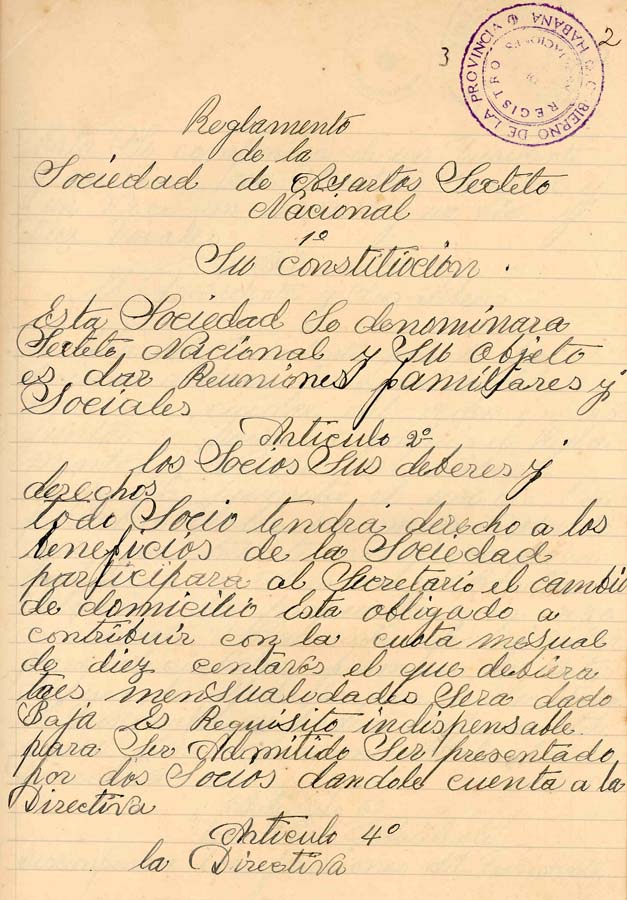 2
3
GOBIERNO DE LA PROVINCIA HABANA
REGISTRO
Reglamento
de la
Sociedad de Sexteto
Nacional
1º
Su constitucion.
Esta Sociedad Se denominara
Sexteto Nacional y Su Objeto
es dar Reuniones familiares y
Sociales
Articulo 2º
los Socios Sus deberes y
derechos
todo Socio tendrá derecho a los
beneficios de la Sociedad
participara al Secretario el cambio
de domicilio Esta obligado a
contribuir con la cuota mesual
de diez centavos el que debiera
tres mensualidades Sera dado
Baja Es Requisito indispensable
para Ser Admitido Ser presentado
por dos Socios dandole cuenta a la
Directiva
Articulo 4º
la Directiva